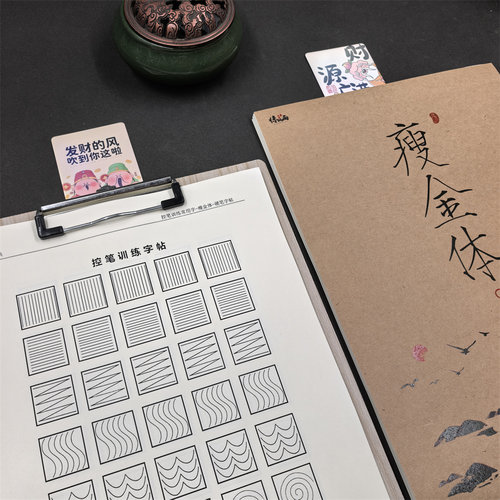 发财的风
吹到你这啦
财
源
控笔训练常用字-瘦金体-硬笔字帖
控笔训练字帖
瘦金体